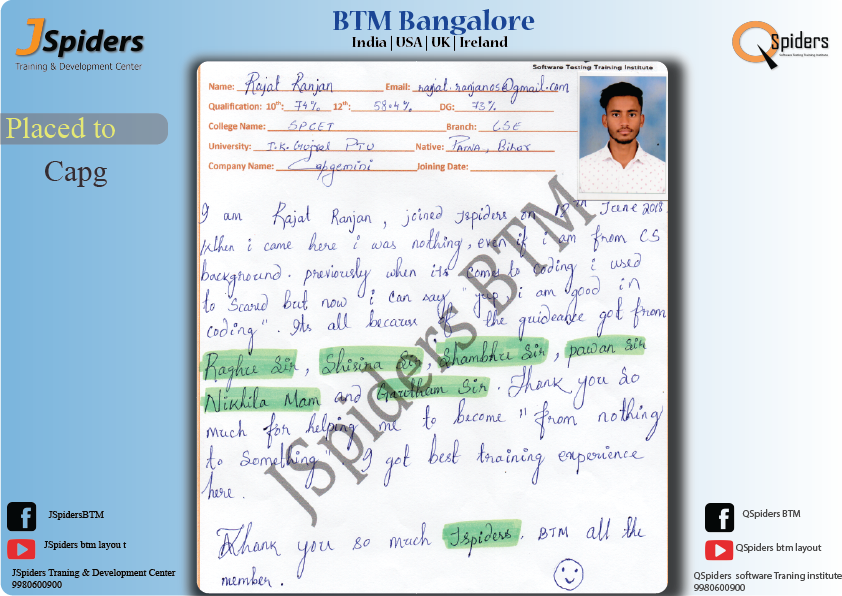 JSpiders
Training & Development Center
BTM Bangalore
India | USA | UK | Ireland
QSpiders
Software Testing Training Institute
Placed to
Capg
Software Testing Training Institute
Name: Rajat Ranjan Email: rajat.ranjan05@gmail.com
Qualification: 10th: 74% 12th: 58.4% DG: 73%
College Name: SPCET Branch: CSE
University: I.K. Gujral PTU Native: Patna, Bihar
Company Name: Capgemini Joining Date:
I am Rajat Ranjan, joined Jspiders on 12th June 2018.
When i came here i was nothing, even if i am from CS
background. previously when its comes to coding i used
to scared but now i can say "yup, i am good in
coding". Its all because of the guideance got from
Raghu Sir, Shisira Sir, Shambhu Sir, pawan Sir
Nikhila Mam and Goutham Sir. Thank you so
much for helping me to become "from nothing
to something". I got best training experience
here.
Thank you so much Jspiders, BTM all the
member.
JSpiders BTM
JSpidersBTM
JSpiders btm layou t
JSpiders Traning & Development Center
9980600900
QSpiders BTM
QSpiders btm layout
QSpiders software Traning institute
9980600900